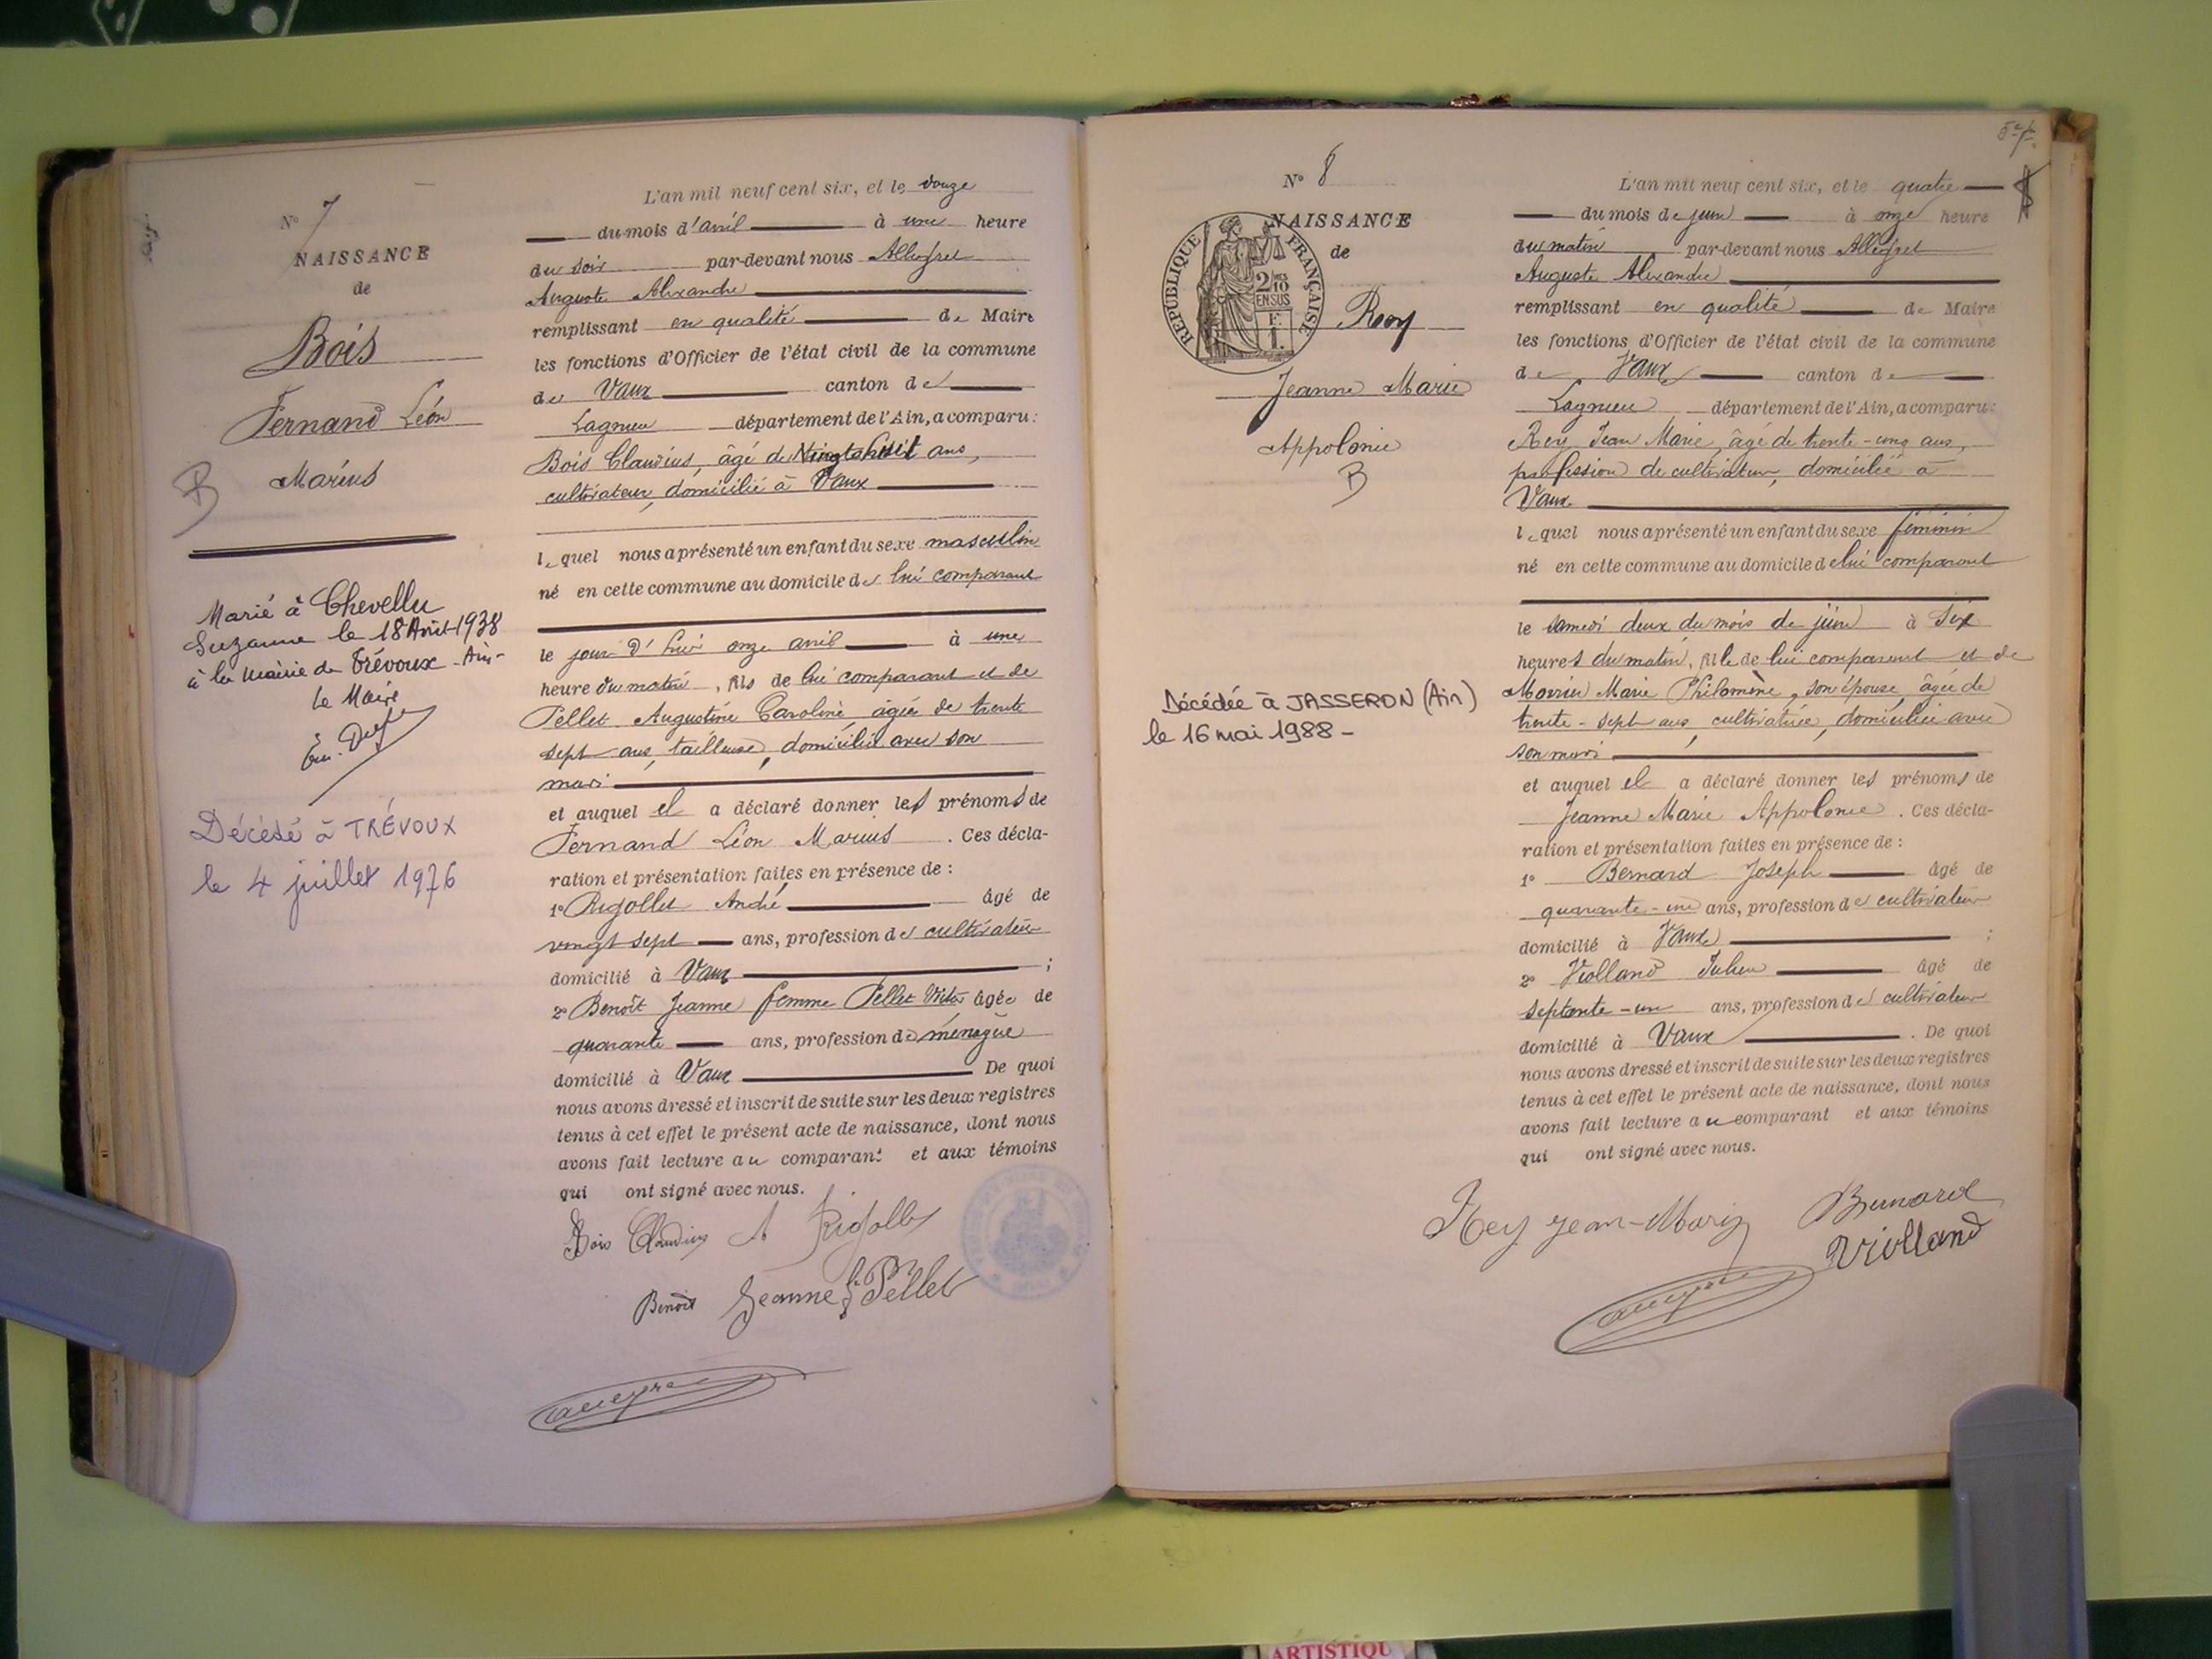 N° 7
NAISSANCE
de
Bois
Fernand Léon
Marius
B
Marié à Chevellu
Suzanne le 18 Août 1938
à la Mairie de Trévoux - Ain -
Le Maire
Décédé à TRÉVOUX
le 4 juillet 1976
L'an mil neuf cent six, et le douze
du mois d'avril à une heure
du soir par-devant nous Allegret
Auguste Alexandre
remplissant en qualité de Maire
les fonctions d'Officier de l'état civil de la commune
de Vaux canton de
Lagnieu département de l'Ain, a comparu:
Bois Claudius, âgé de Vingt huit ans,
cultivateur, domicilié à Vaux
lequel nous a présenté un enfant du sexe masculin
né en cette commune au domicile de lui comparant
le jour d'hier onze avril à une
heure du matin, fils de lui comparant et de
Pellet Augustine Caroline âgée de trente
sept ans, tailleuse, domiciliée avec son
mari
et auquel il a déclaré donner les prénoms de
Fernand Léon Marius . Ces décla-
ration et présentation faites en présence de :
1° Rigollet André âgé de
vingt sept ans, profession de cultivateur
domicilié à Vaux ;
2° Benoît Jeanne femme Pellet Victor âgée de
quarante ans, profession de ménagère
domicilié à Vaux De quoi
nous avons dressé et inscrit de suite sur les deux registres
tenus à cet effet le présent acte de naissance, dont nous
avons fait lecture au comparant et aux témoins
qui ont signé avec nous.
Bois Claudius A Rigollet
Benoît Jeanne f Pellet
N° 8
NAISSANCE
de
RÉPUBLIQUE FRANÇAISE
2/10
EN SUS
F.
1.
Rey
Jeanne Marie
Appolonie
B
Décédée à JASSERON (Ain)
le 16 mai 1988 -
L'an mil neuf cent six, et le quatre
du mois de juin à onze heure
du matin par-devant nous Allegret
Auguste Alexandre
remplissant en qualité de Maire
les fonctions d'Officier de l'état civil de la commune
de Vaux canton de
Lagnieu département de l'Ain, a comparu:
Rey Jean Marie, âgé de trente-cinq ans,
profession de cultivateur, domicilié à
Vaux
lequel nous a présenté un enfant du sexe féminin
né en cette commune au domicile de lui comparant
le samedi deux du mois de juin à six
heures du matin, fille de lui comparant et de
Morrier Marie Philomène, son épouse, âgée de
trente-sept ans, cultivatrice, domiciliée avec
son mari
et auquel il a déclaré donner les prénoms de
Jeanne Marie Appolonie . Ces décla-
ration et présentation faites en présence de :
1° Bernard Joseph âgé de
quarante-un ans, profession de cultivateur
domicilié à Vaux ;
2° Violland Julien âgé de
septante-un ans, profession de cultivateur
domicilié à Vaux . De quoi
nous avons dressé et inscrit de suite sur les deux registres
tenus à cet effet le présent acte de naissance, dont nous
avons fait lecture au comparant et aux témoins
qui ont signé avec nous.
Rey Jean-Marie Bernard
Violland
ARTISTIQU